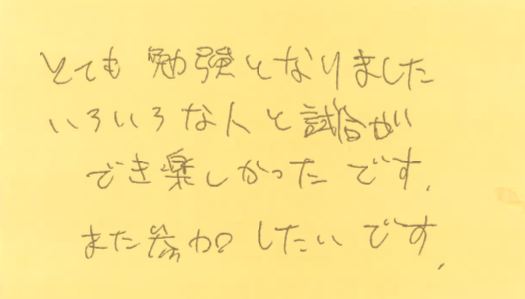 とても勉強となりました
いろいろな人と試合が
でき楽しかったです.
また参加したいです.